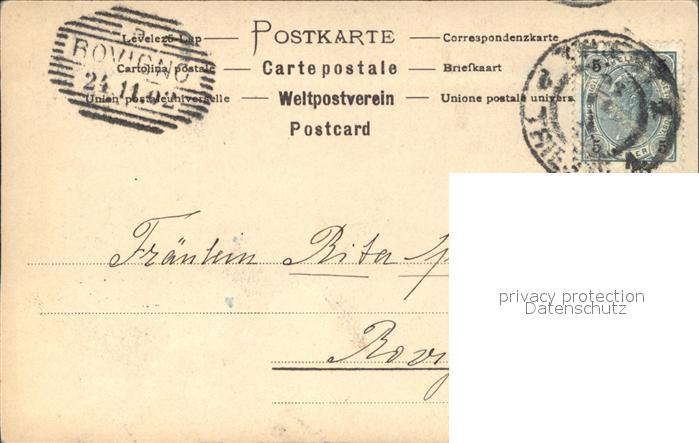 Levelező-Lap — POSTKARTE — Correspondenzkarte
Cartolina postale — Cartepostale — Briefkaart
Union postale universelle — Weltpostverein — Unione postale univers
Postcard
ROVIGNO
24.11.02
5 5
5 5
Fräulein Rita
privacy protection
Datenschutz
Rovi